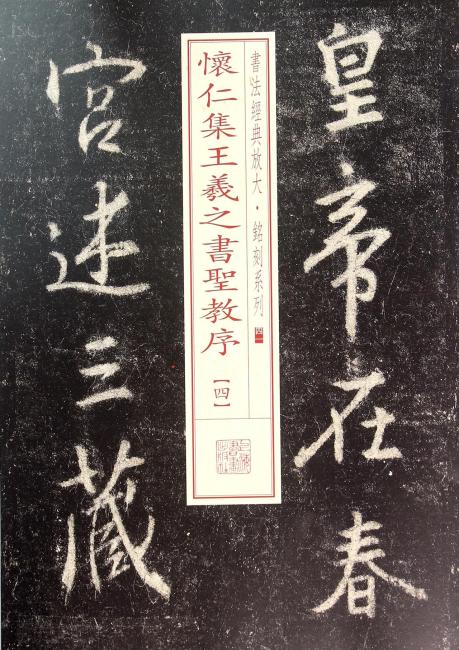 皇帝在春
書法經典放大·銘刻系列
懷仁集王羲之書聖教序
【四】
宮述三藏